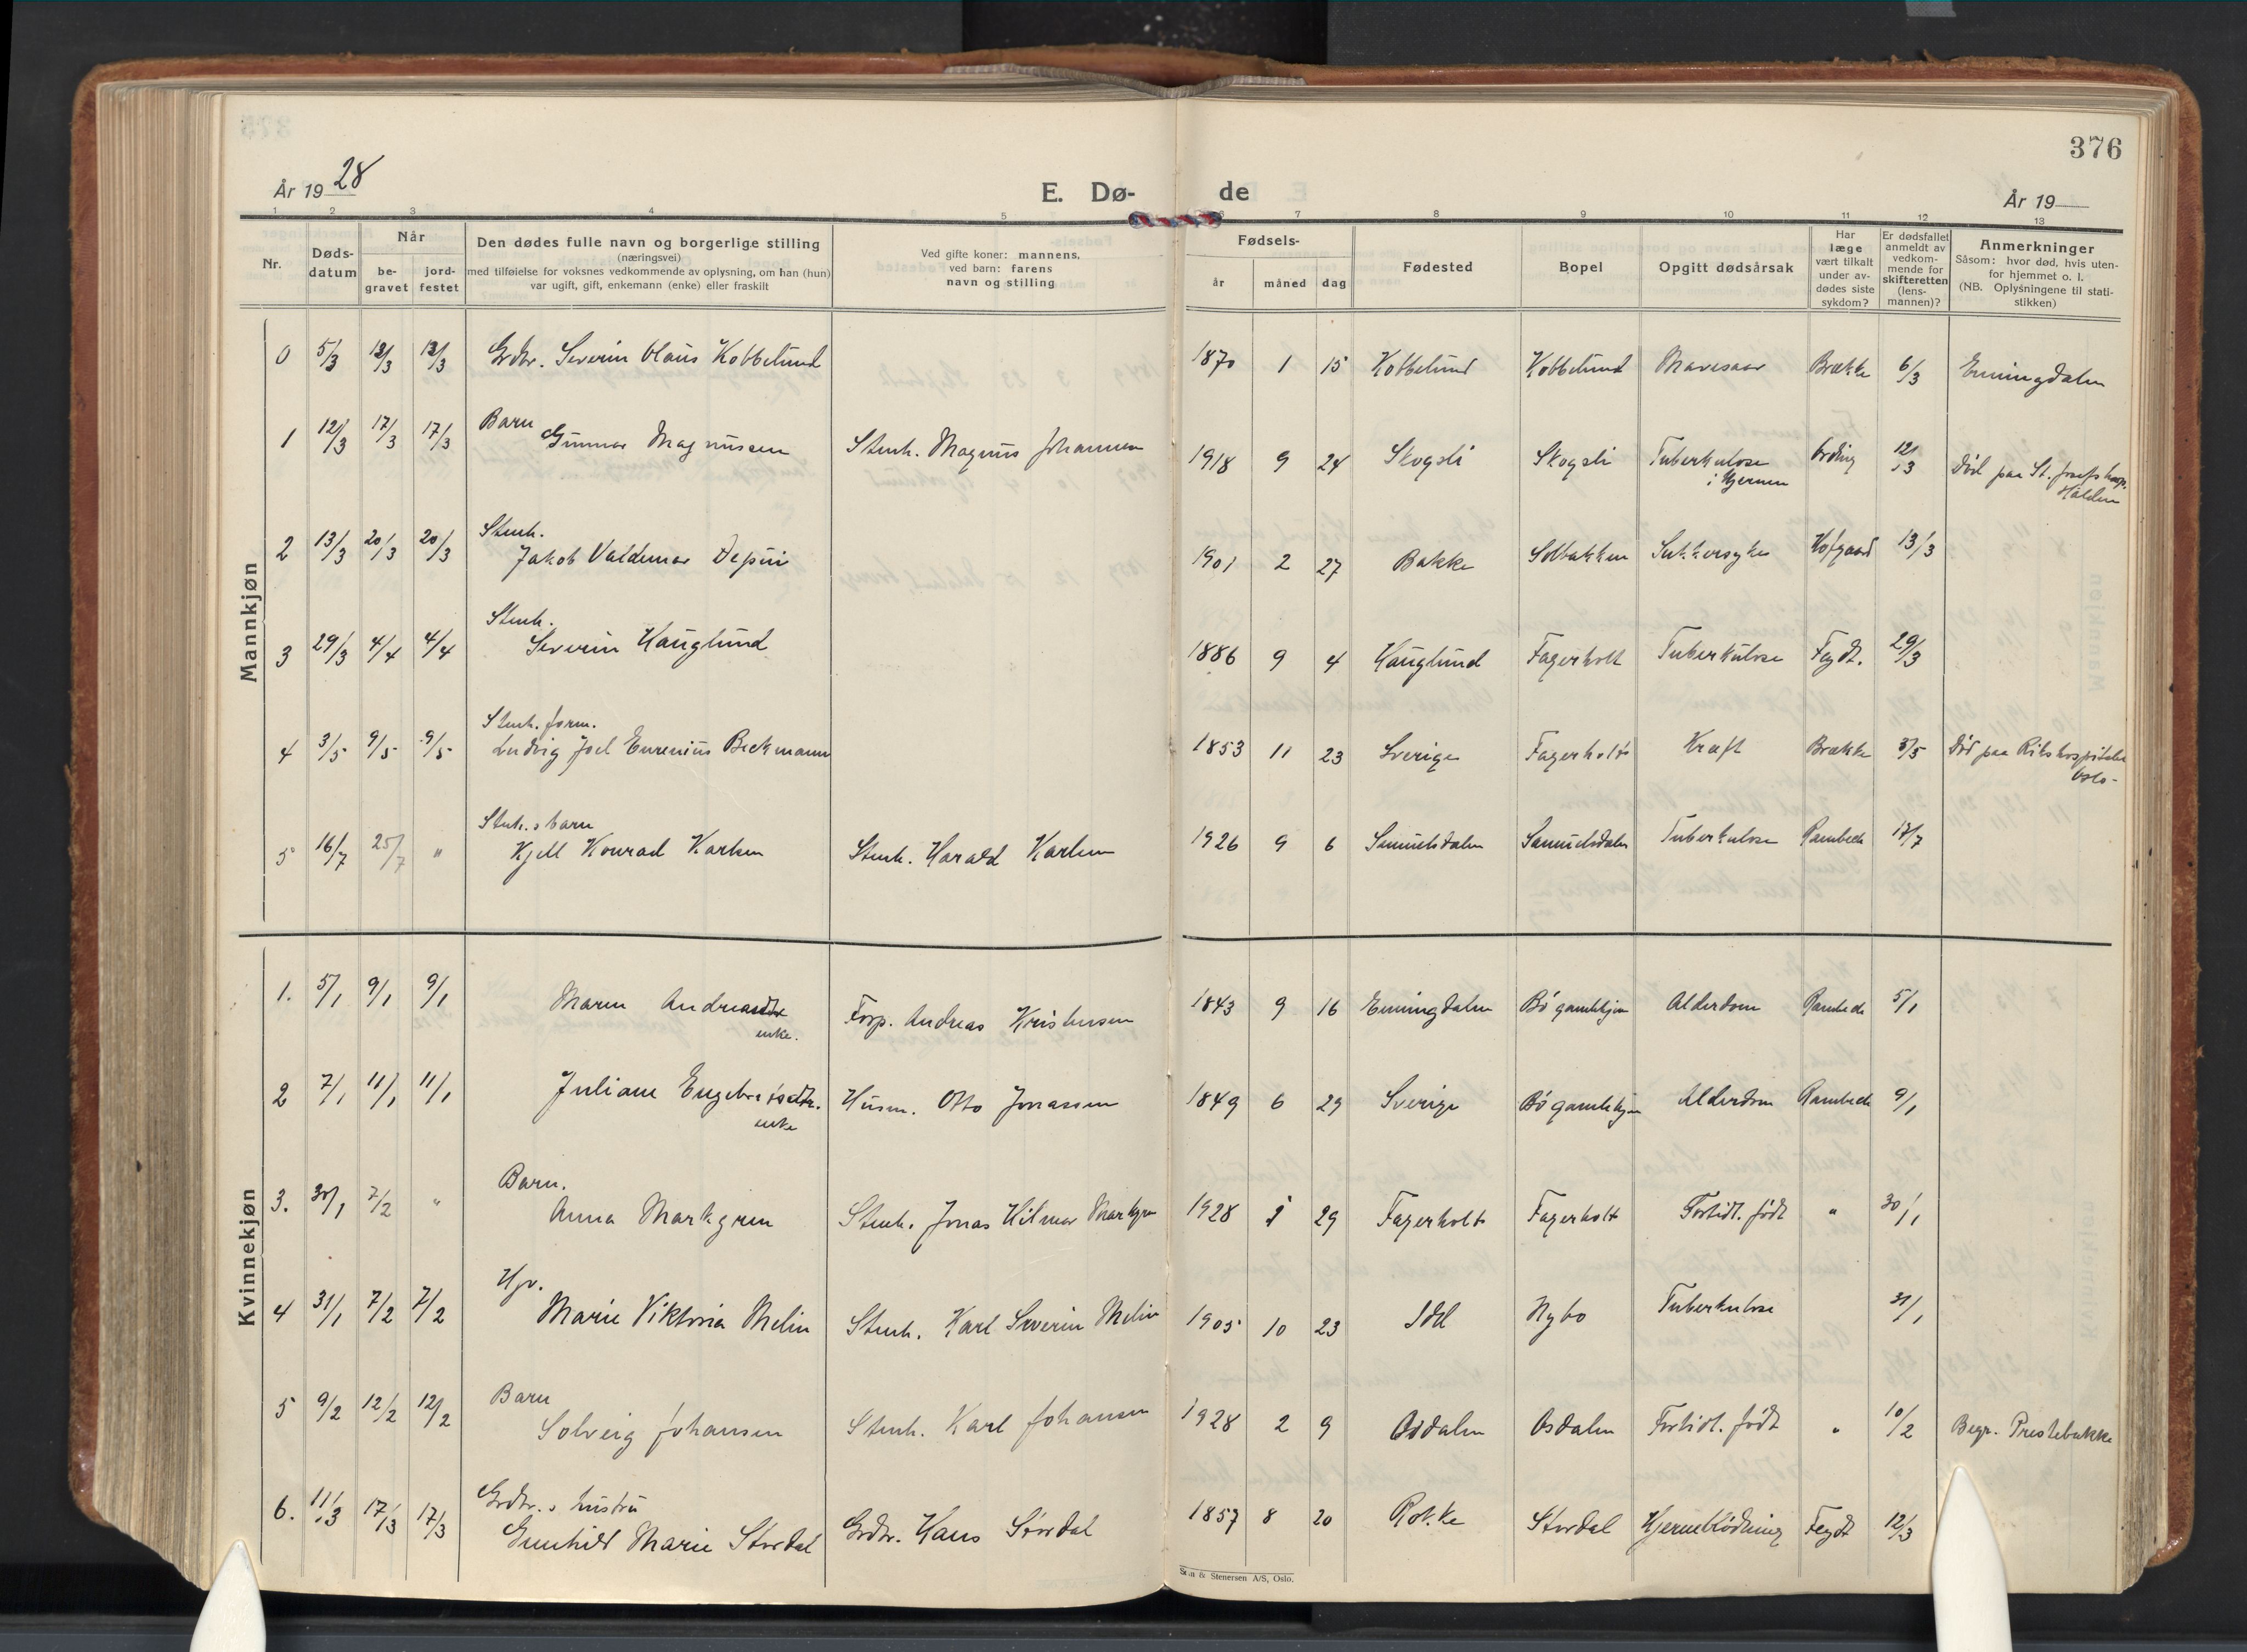 376
År 1928
E. Dø- de
År 19
1 2 3 4 5 6 7 8 9 10 11 12 13
Nr.
Døds-
datum
Når
be-
gravet
jord-
festet
Den dødes fulle navn og borgerlige stilling
(næringsvei)
med tilføielse for voksnes vedkommende av oplysning, om han (hun)
var ugift, gift, enkemann (enke) eller fraskilt
Ved gifte koner: mannens,
ved barn: farens
navn og stilling
Fødsels-
år måned dag
Fødested
Bopel
Opgitt dødsårsak
Har
læge
vært tilkalt
under av-
dødes siste
sykdom?
Er dødsfallet
anmeldt av
vedkom-
mende for
skifteretten
(lens-
mannen)?
Anmerkninger
Såsom: hvor død, hvis uten-
for hjemmet o. l.
(NB. Oplysningene til stati-
stikken)
Mannkjøn
0 5/3 12/3 12/3 Grdbr. Severin Claus Kobbelund 1870 1 15 Kobbelund Kobbelund Mavesaar Brække 6/3 Enningdalen
Barn
1 12/3 17/3 17/3 Gunnar Magnussen Stenh. Magnus Johannsen 1918 9 24 Skogsli Skogsli Tuberkulose Ording 12/3 Død paa St. Josefs hosp.
i Hjernen Halden
Stenh.
2 13/3 20/3 20/3 Jakob Valdemar Depui 1901 2 27 Bakke Solbakken Sukkersyke Hofgaard 13/3
Stenh.
3 29/3 4/4 4/4 Severin Hauglund 1886 9 4 Hauglund Fagerholt Tuberkulose Feydt. 29/3
Stenh. form.
4 3/5 9/5 9/5 Ludvig Joel Eurenius Beckmann 1853 11 23 Sverige Fagerholt Kræft Brække 3/5 Død paa Rikshospitalet
Oslo-
Stenh.s barn
5 16/7 25/7 " Kjell Konrad Karlsen Stenh. Harald Karlsen 1926 9 6 Samuelsdalen Samuelsdalen Tuberkulose Rambech 17/7
Kvinnekjøn
1. 5/1 9/1 9/1 Maren Andreasdtr Forp. Andreas Kristensen 1843 9 16 Enningdalen Bø gamlehjem Alderdom Rambech 5/1
enke.
2 7/1 11/1 11/1 Juliane Engebretsdtr. Husm. Otto Jonassen 1849 6 29 Sverige Bø gamlehjem Alderdom Rambech 9/1
enke
Barn.
3. 30/1 7/2 " Anna Markgren Stenh. Jonas Hilmar Markgren 1928 1 29 Fagerholt Fagerholt Fortidl. født " 30/1
Hv.
4 31/1 7/2 7/2 Marie Viktoria Melin Stenh. Karl Severin Melin 1905 10 23 Idd Nybo Tuberkulose 31/1
Barn
5 9/2 12/2 12/2 Solveig Johansen Stenh. Karl Johansen 1928 2 9 Osdalen Osdalen Fortidl. født " 10/2 Begr. Prestebakke
Grdbr.s hustru
6. 11/3 17/3 17/3 Gunhild Marie Stordal Grdbr. Hans Stordal 1857 8 20 Rokke Stordal Hjerneblødning Feydt 12/3
& Stenersen A/S, Oslo.